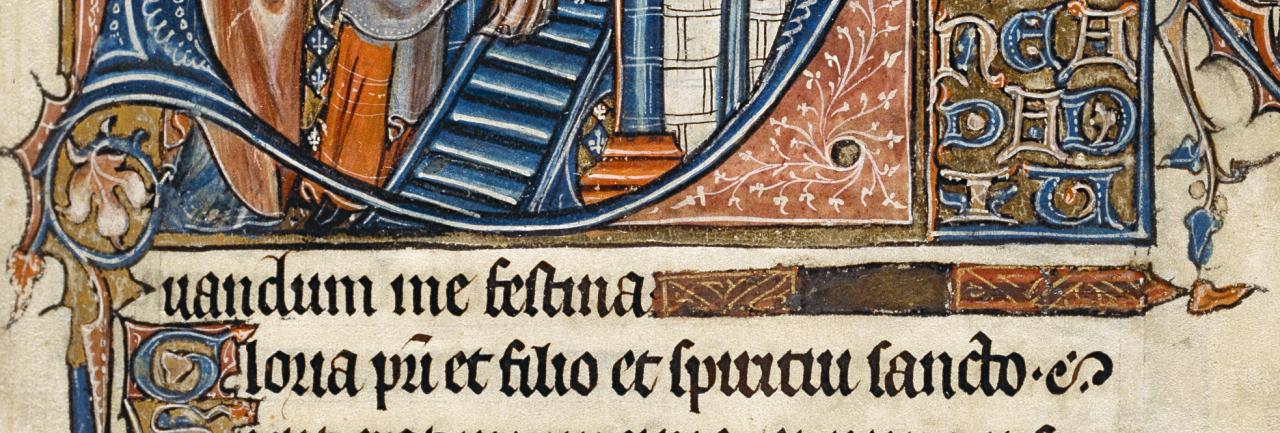 NEA
DAD
IU
uandum me festina
Gloria pr̄i et filio et spiritui sancto·